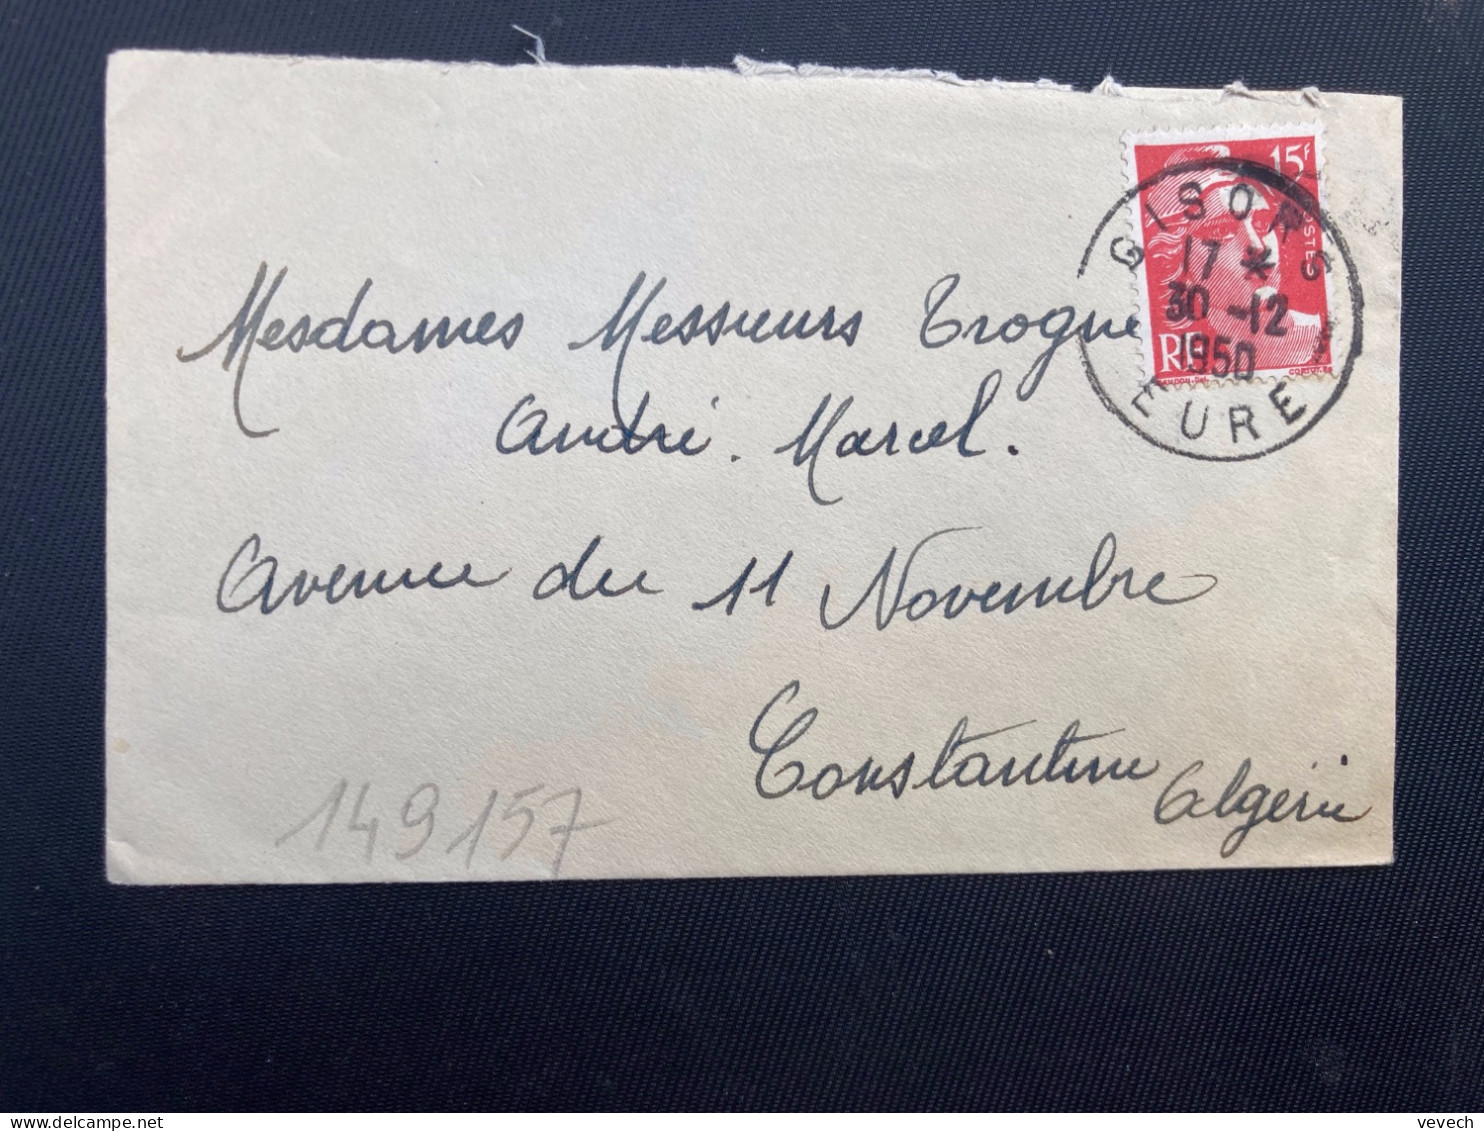 15F
POSTES
RF
GANDON.Del.
CORTOT.Sc
GISORS
17 *
30 -12
1950
EURE
Mesdames Messieurs Trogne
André. Marcel.
Avenue du 11 Novembre
Constantine
Algérie
149157
vevech